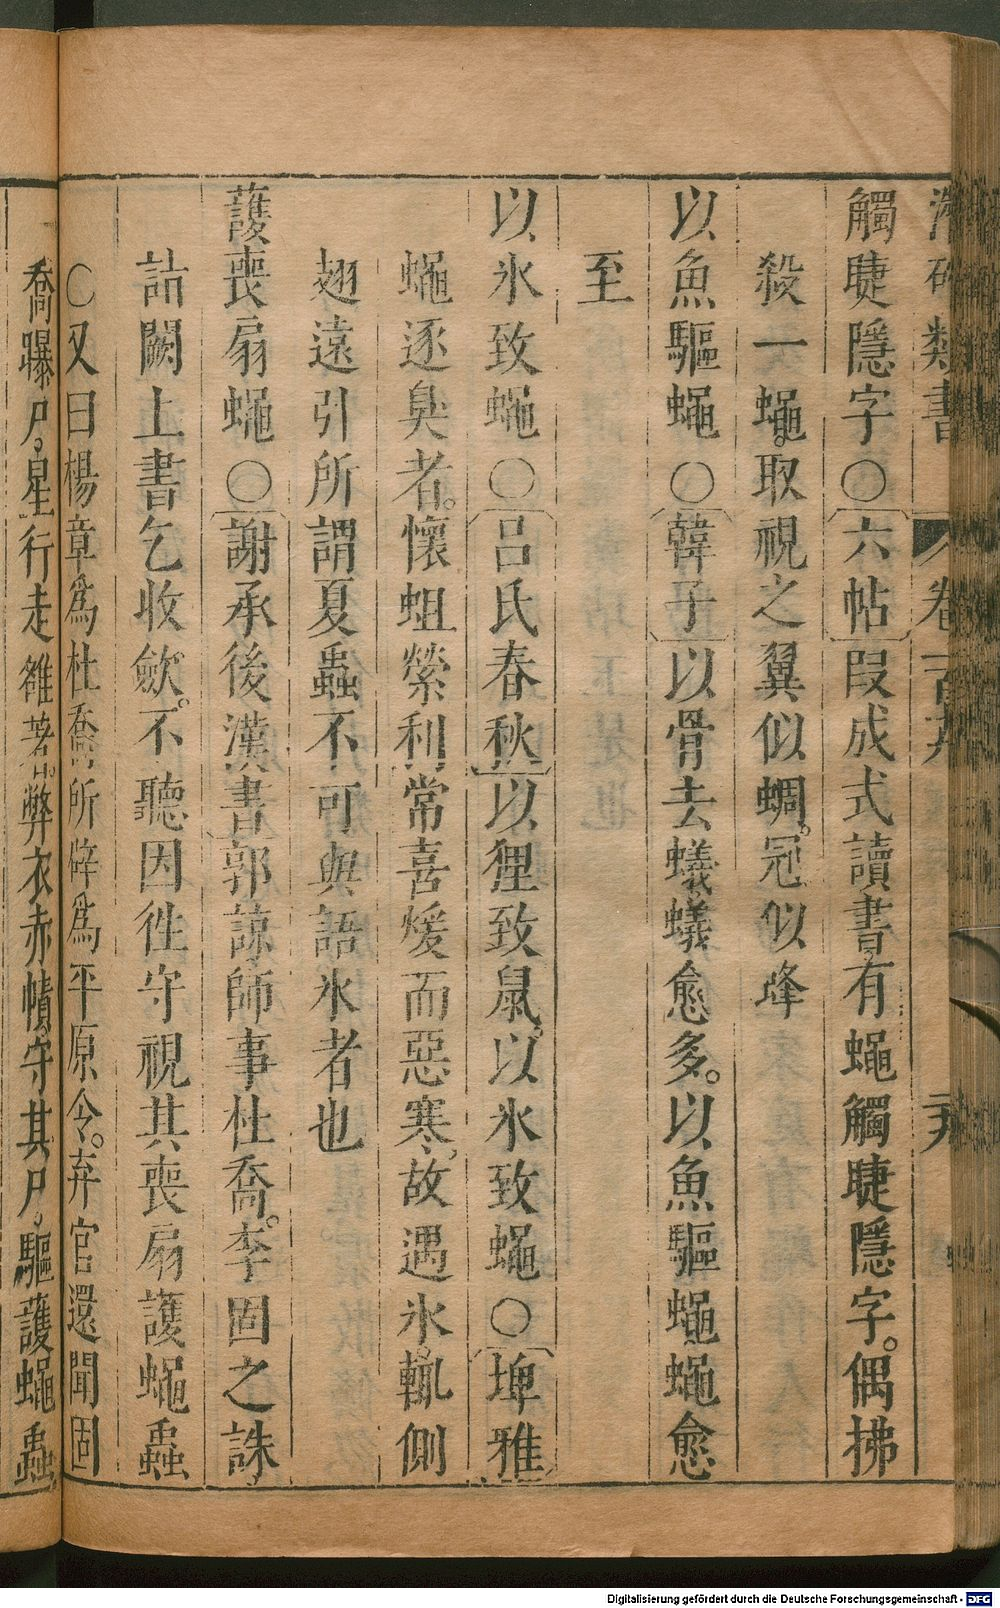 類書 卷一百
觸睫隱字〇六帖叚成式讀書有蠅觸睫隱字。偶拂
殺一蠅。取視之翼似蜩。冠似蜂
以魚驅蠅〇韓子以骨去蟻蟻愈多。以魚驅蠅蠅愈
至
以氷致蠅〇呂氏春秋以狸致鼠。以氷致蠅〇埤雅
蠅逐臭者。懷蛆縈利常喜煖而惡寒。故遇氷。輒側
翅遠引所謂夏蟲不可與語氷者也
護喪扇蠅〇謝承後漢書郭諒師事杜喬。李固之誅
詣闕上書乞收斂。不聽因徃守視其喪扇護蠅蟲
〇又曰楊章爲杜喬所辟爲平原令。弃官還聞固
喬曝尸。星行走雒著弊衣赤幘。守其尸。驅護蠅蟲
Digitalisierung gefördert durch die Deutsche Forschungsgemeinschaft - DFG